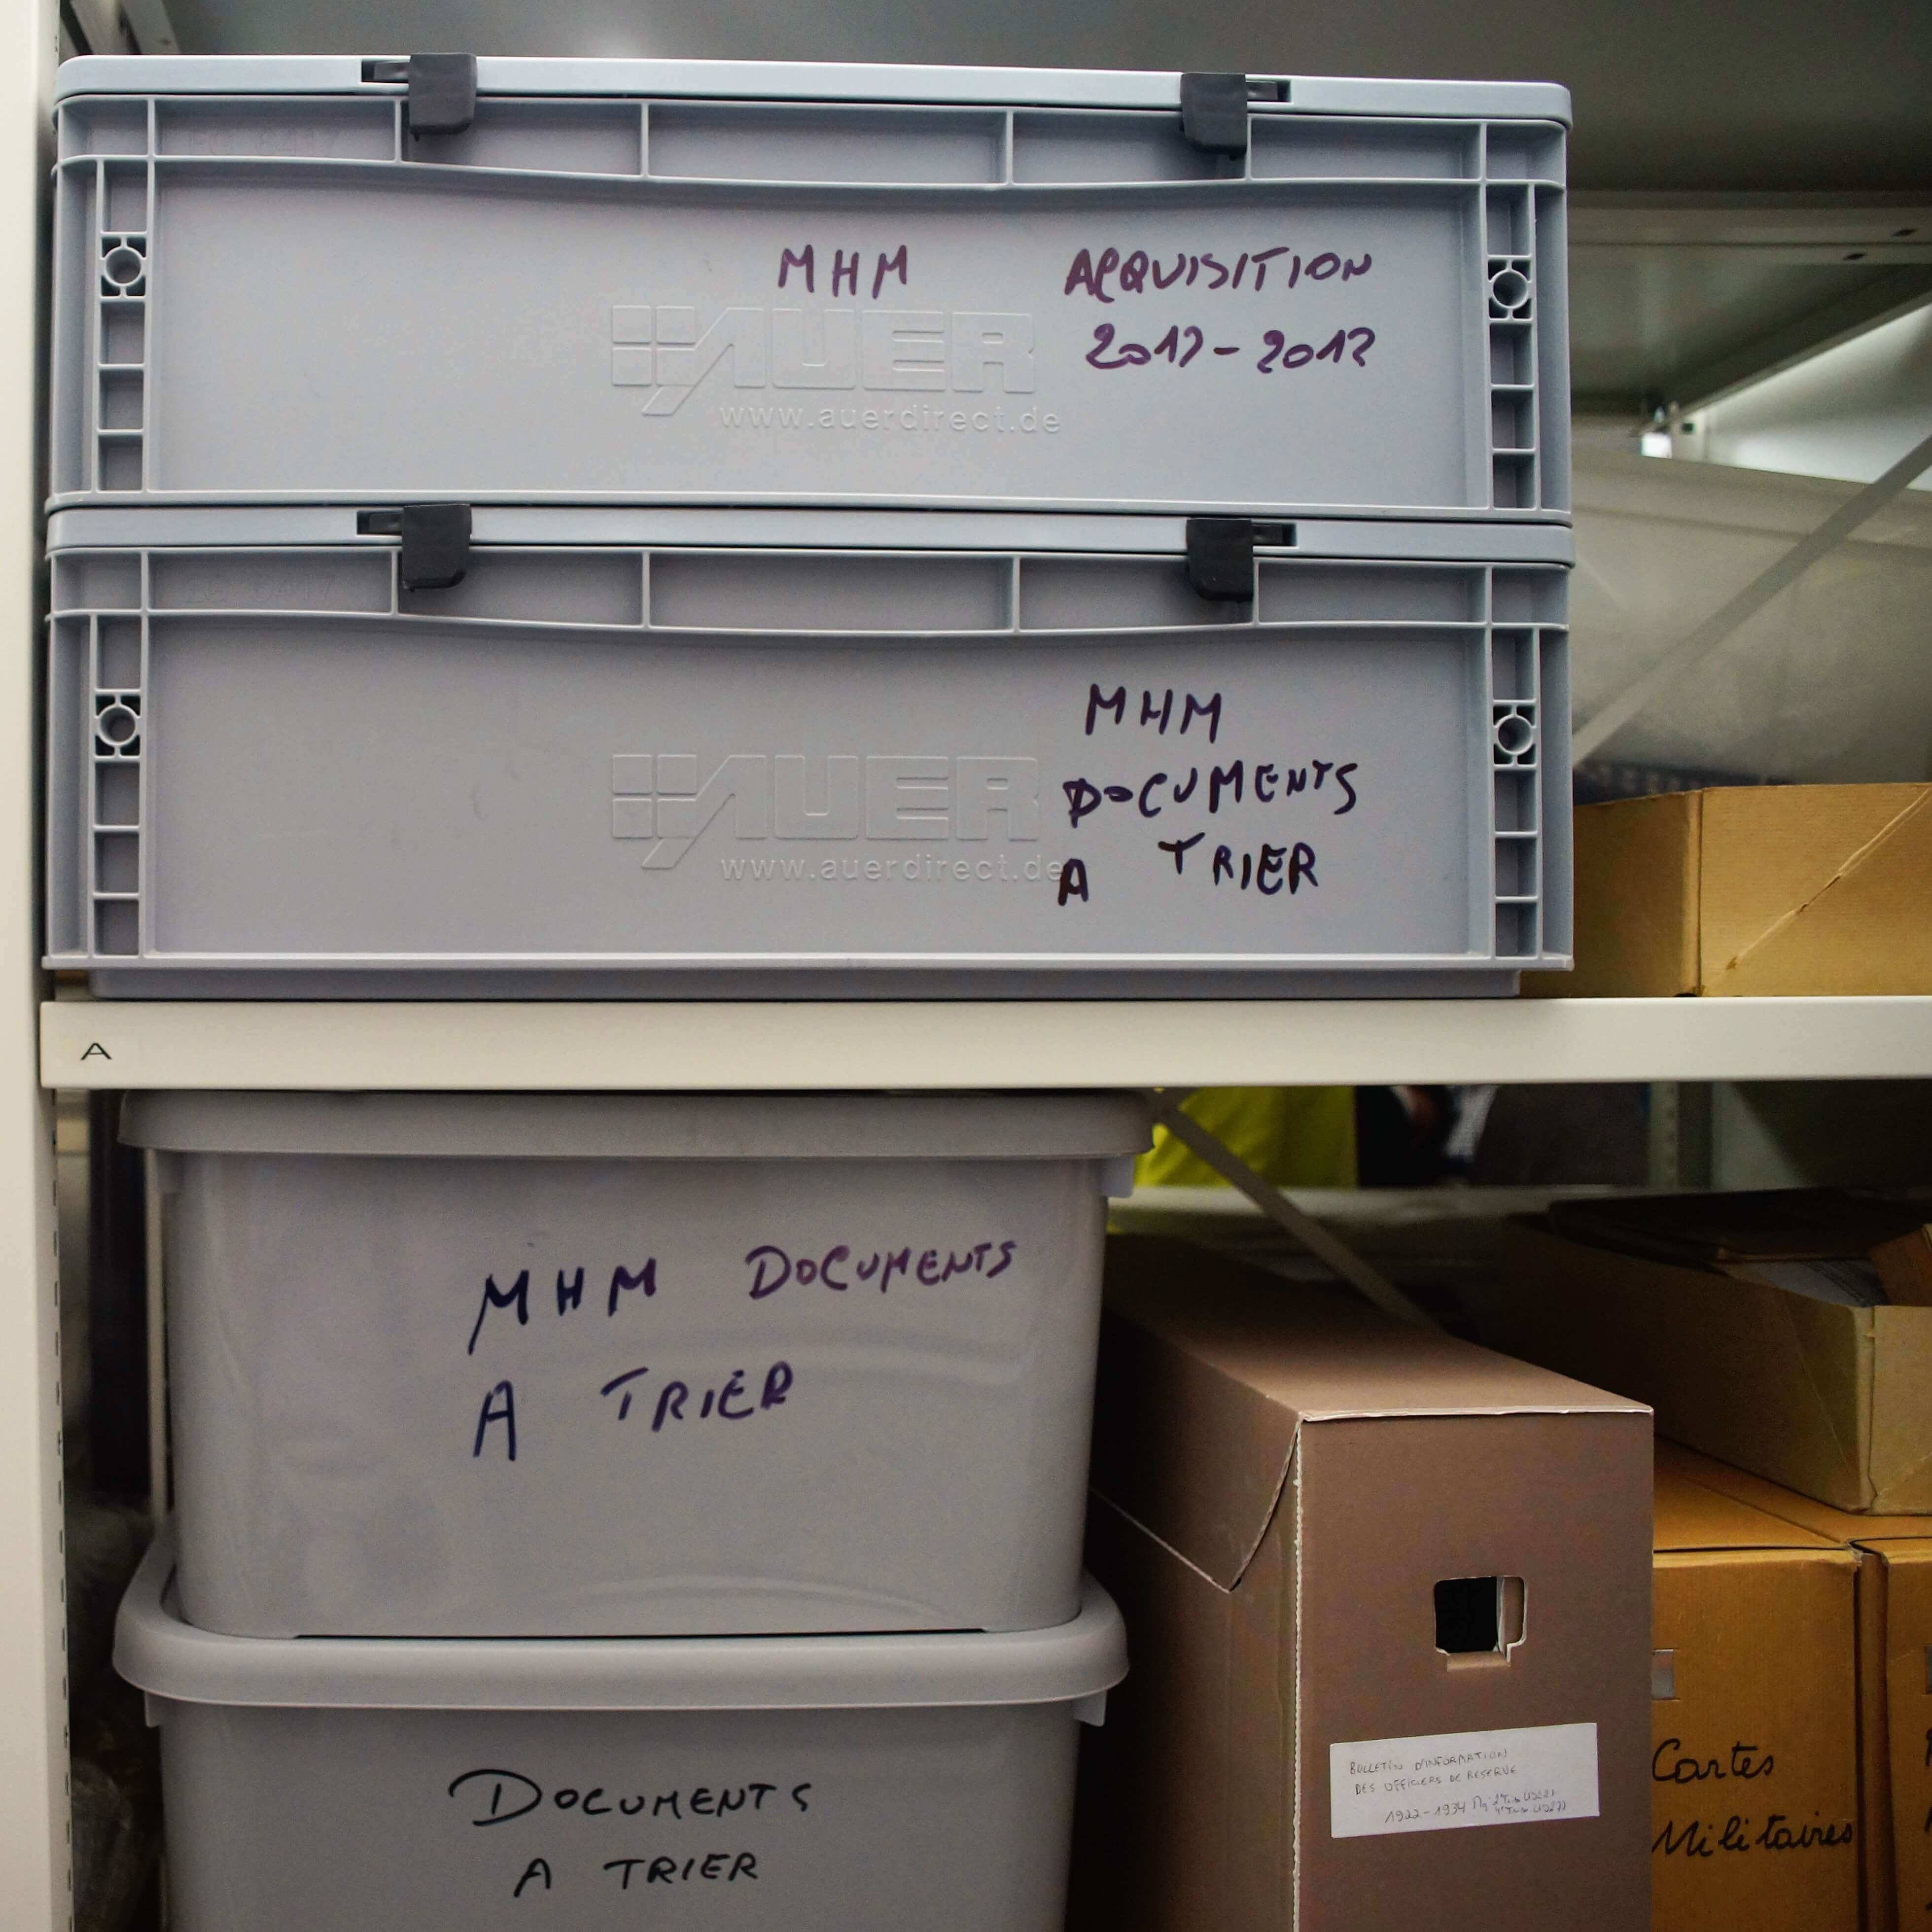 MHM ACQUISITION
2017-2012
AUER
www.auerdirect.de
MHM
DOCUMENTS
A TRIER
AUER
www.auerdirect.de
A
MHM DOCUMENTS
A TRIER
DOCUMENTS
A TRIER
BULLETIN D'INFORMATION
DES OFFICIERS DE RESERVE
1922-1934
Cartes
Militaires